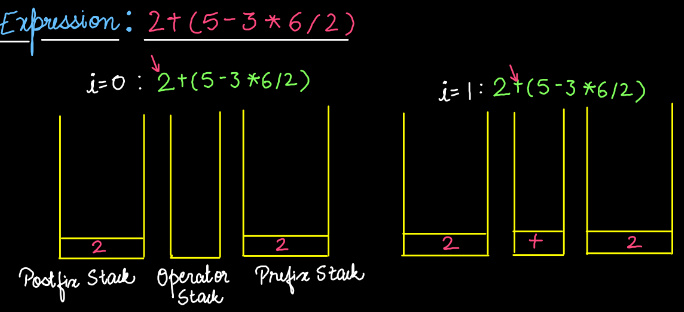 Expression: 2+(5-3*6/2)
i=0: 2+(5-3*6/2)
2
2
Postfix Stack
Operator Stack
Prefix Stack
i=1: 2+(5-3*6/2)
2
+
2